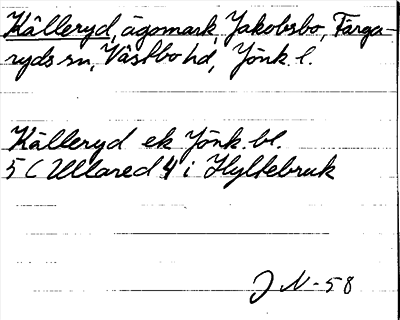 Källeryd, ägomark, Jakobsbo, Färga-
ryds sn, Västbo hd, Jönk. l.
Källeryd ek Jönk. bl.
5 C Ullared 4 i Hyltebruk
J N - 58